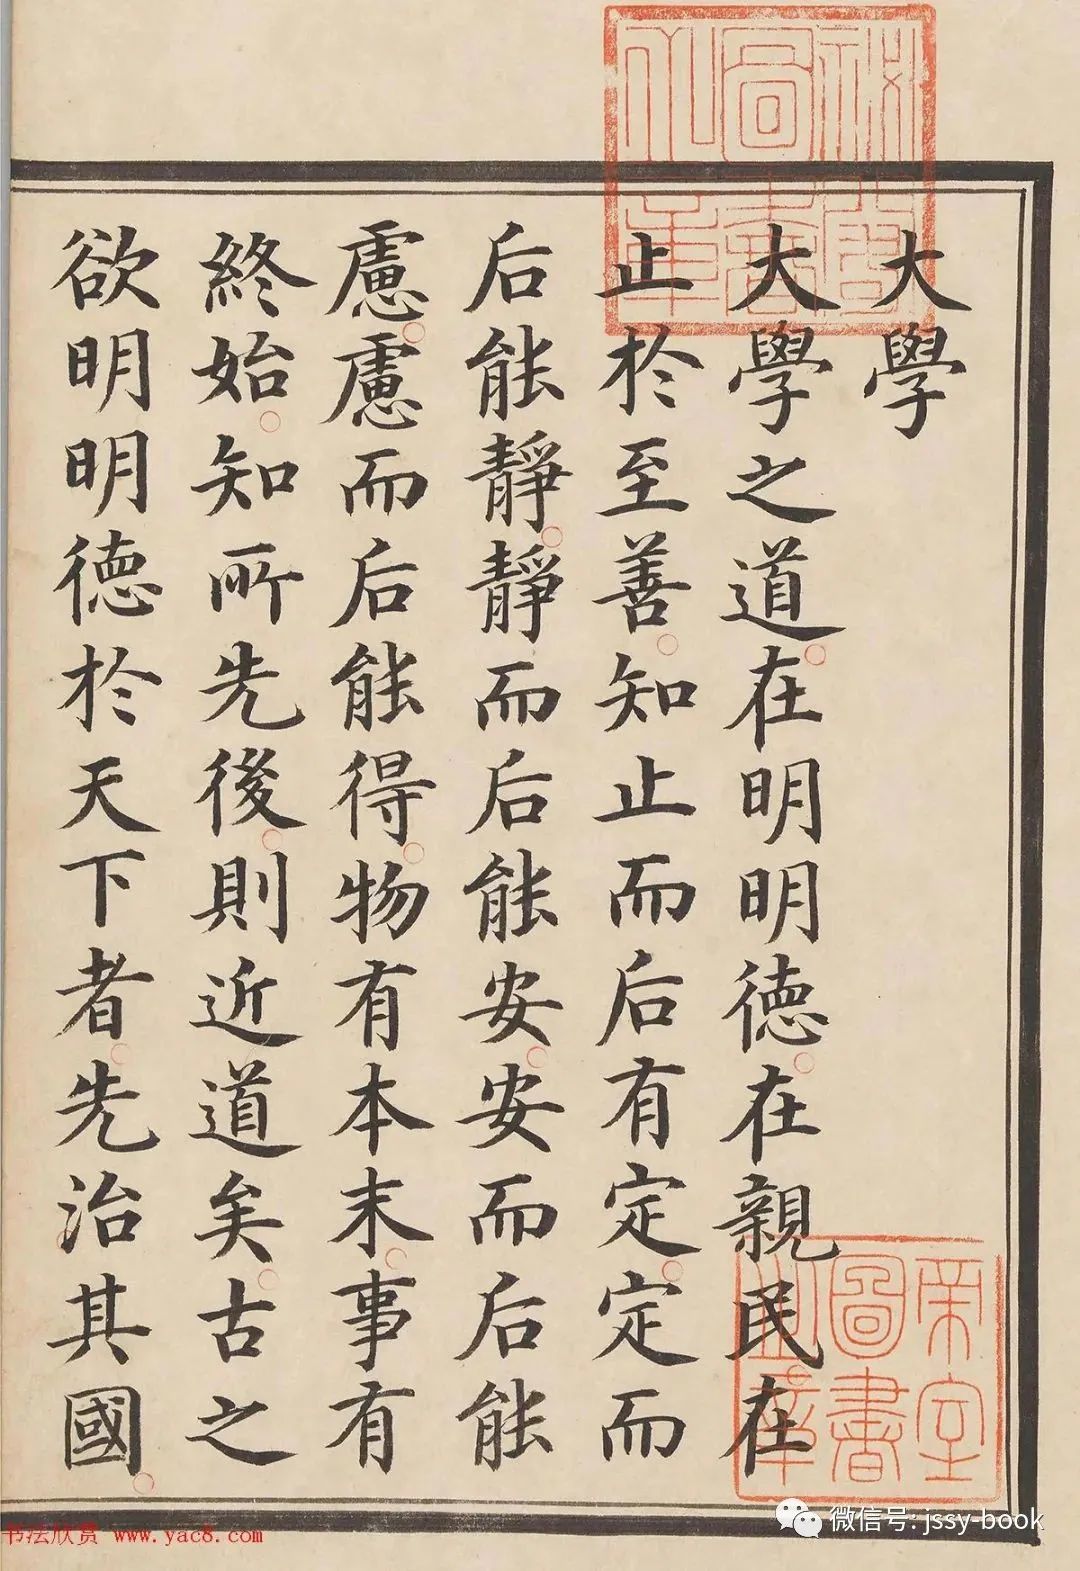 大學
大學之道在明明德在親民在
止於至善知止而后有定定而
后能靜靜而后能安安而后能
慮慮而后能得物有本末事有
終始知所先後則近道矣古之
欲明明德於天下者先治其國
秘閣圖書之章
帝室圖書之章
书法欣赏 www.yac8.com
微信号: jssy-book